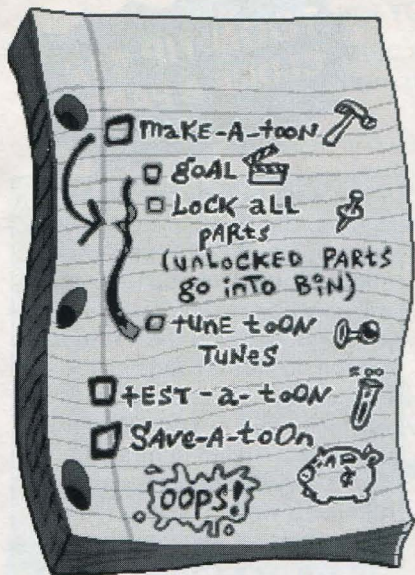 maKE-A-tooN
goAL
LocK aLL
PARts
(unLocKED PARts
go inTo BiN)
tunE tooN
TuNeS
tEST-a-tooN
SAve-A-toOn
OOPS!